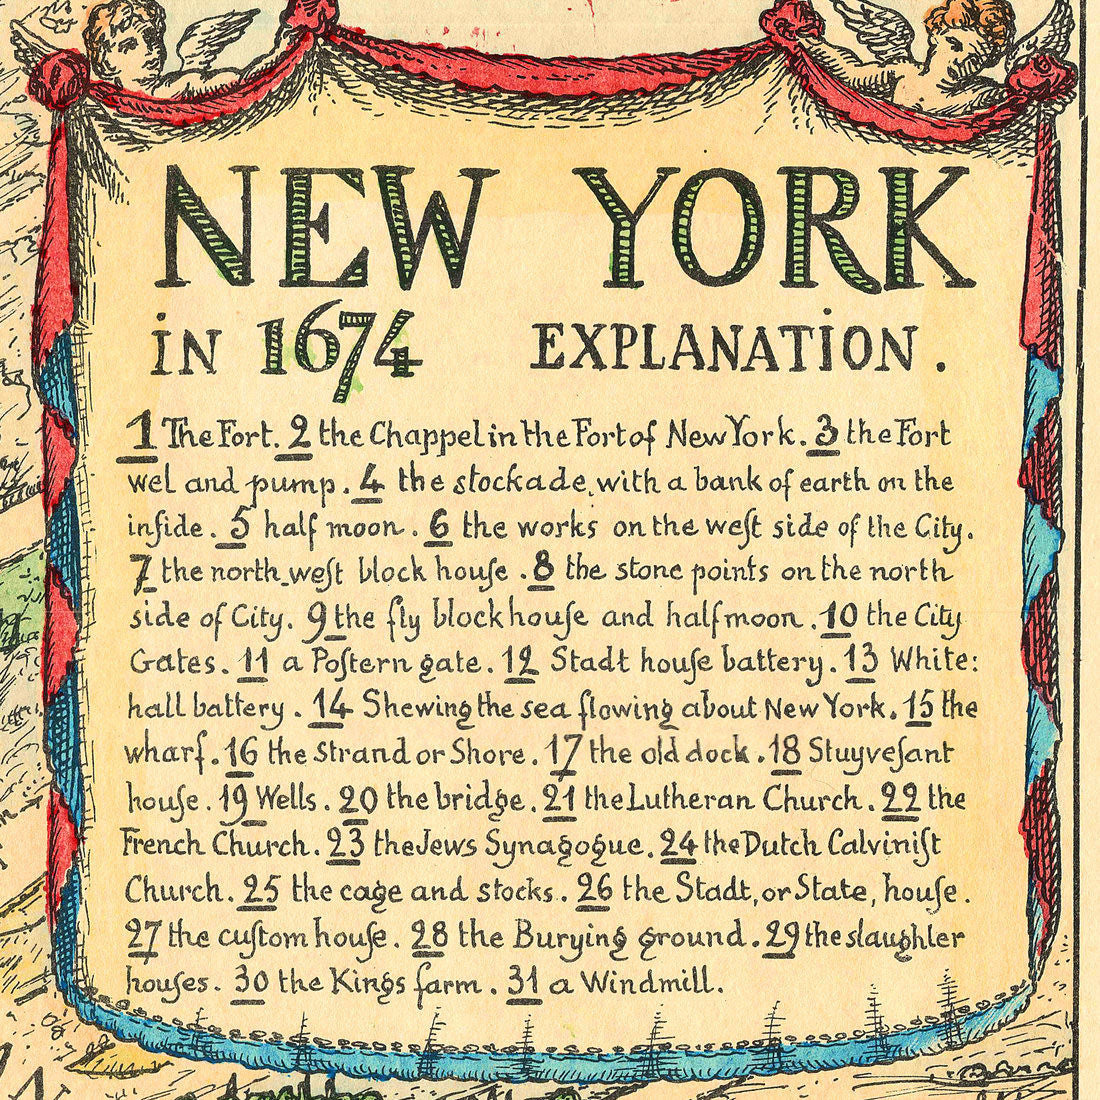 NEW YORK
iN 1674 EXPLANATiON.
1 The Fort. 2 the Chappel in the Fort of New York. 3 the Fort
wel and pump. 4 the stockade, with a bank of earth on the
inſide. 5 half moon. 6 the works on the weſt side of the City.
7 the north-weſt block houſe. 8 the stone points on the north
side of City. 9 the fly blockhouſe and halfmoon. 10 the City
Gates. 11 a Poſtern gate. 12 Stadt houſe battery. 13 White:
hall battery. 14 Shewing the sea flowing about New York. 15 the
wharf. 16 the Strand or Shore. 17 the old dock. 18 Stuyveſant
houſe. 19 Wells. 20 the bridge. 21 the Lutheran Church. 22 the
French Church. 23 the Jews Synagogue. 24 the Dutch Calviniſt
Church. 25 the cage and stocks. 26 the Stadt, or State, houſe.
27 the cuſtom houſe. 28 the Burying ground. 29 the slaughler
houſes. 30 the Kings farm. 31 a Windmill.